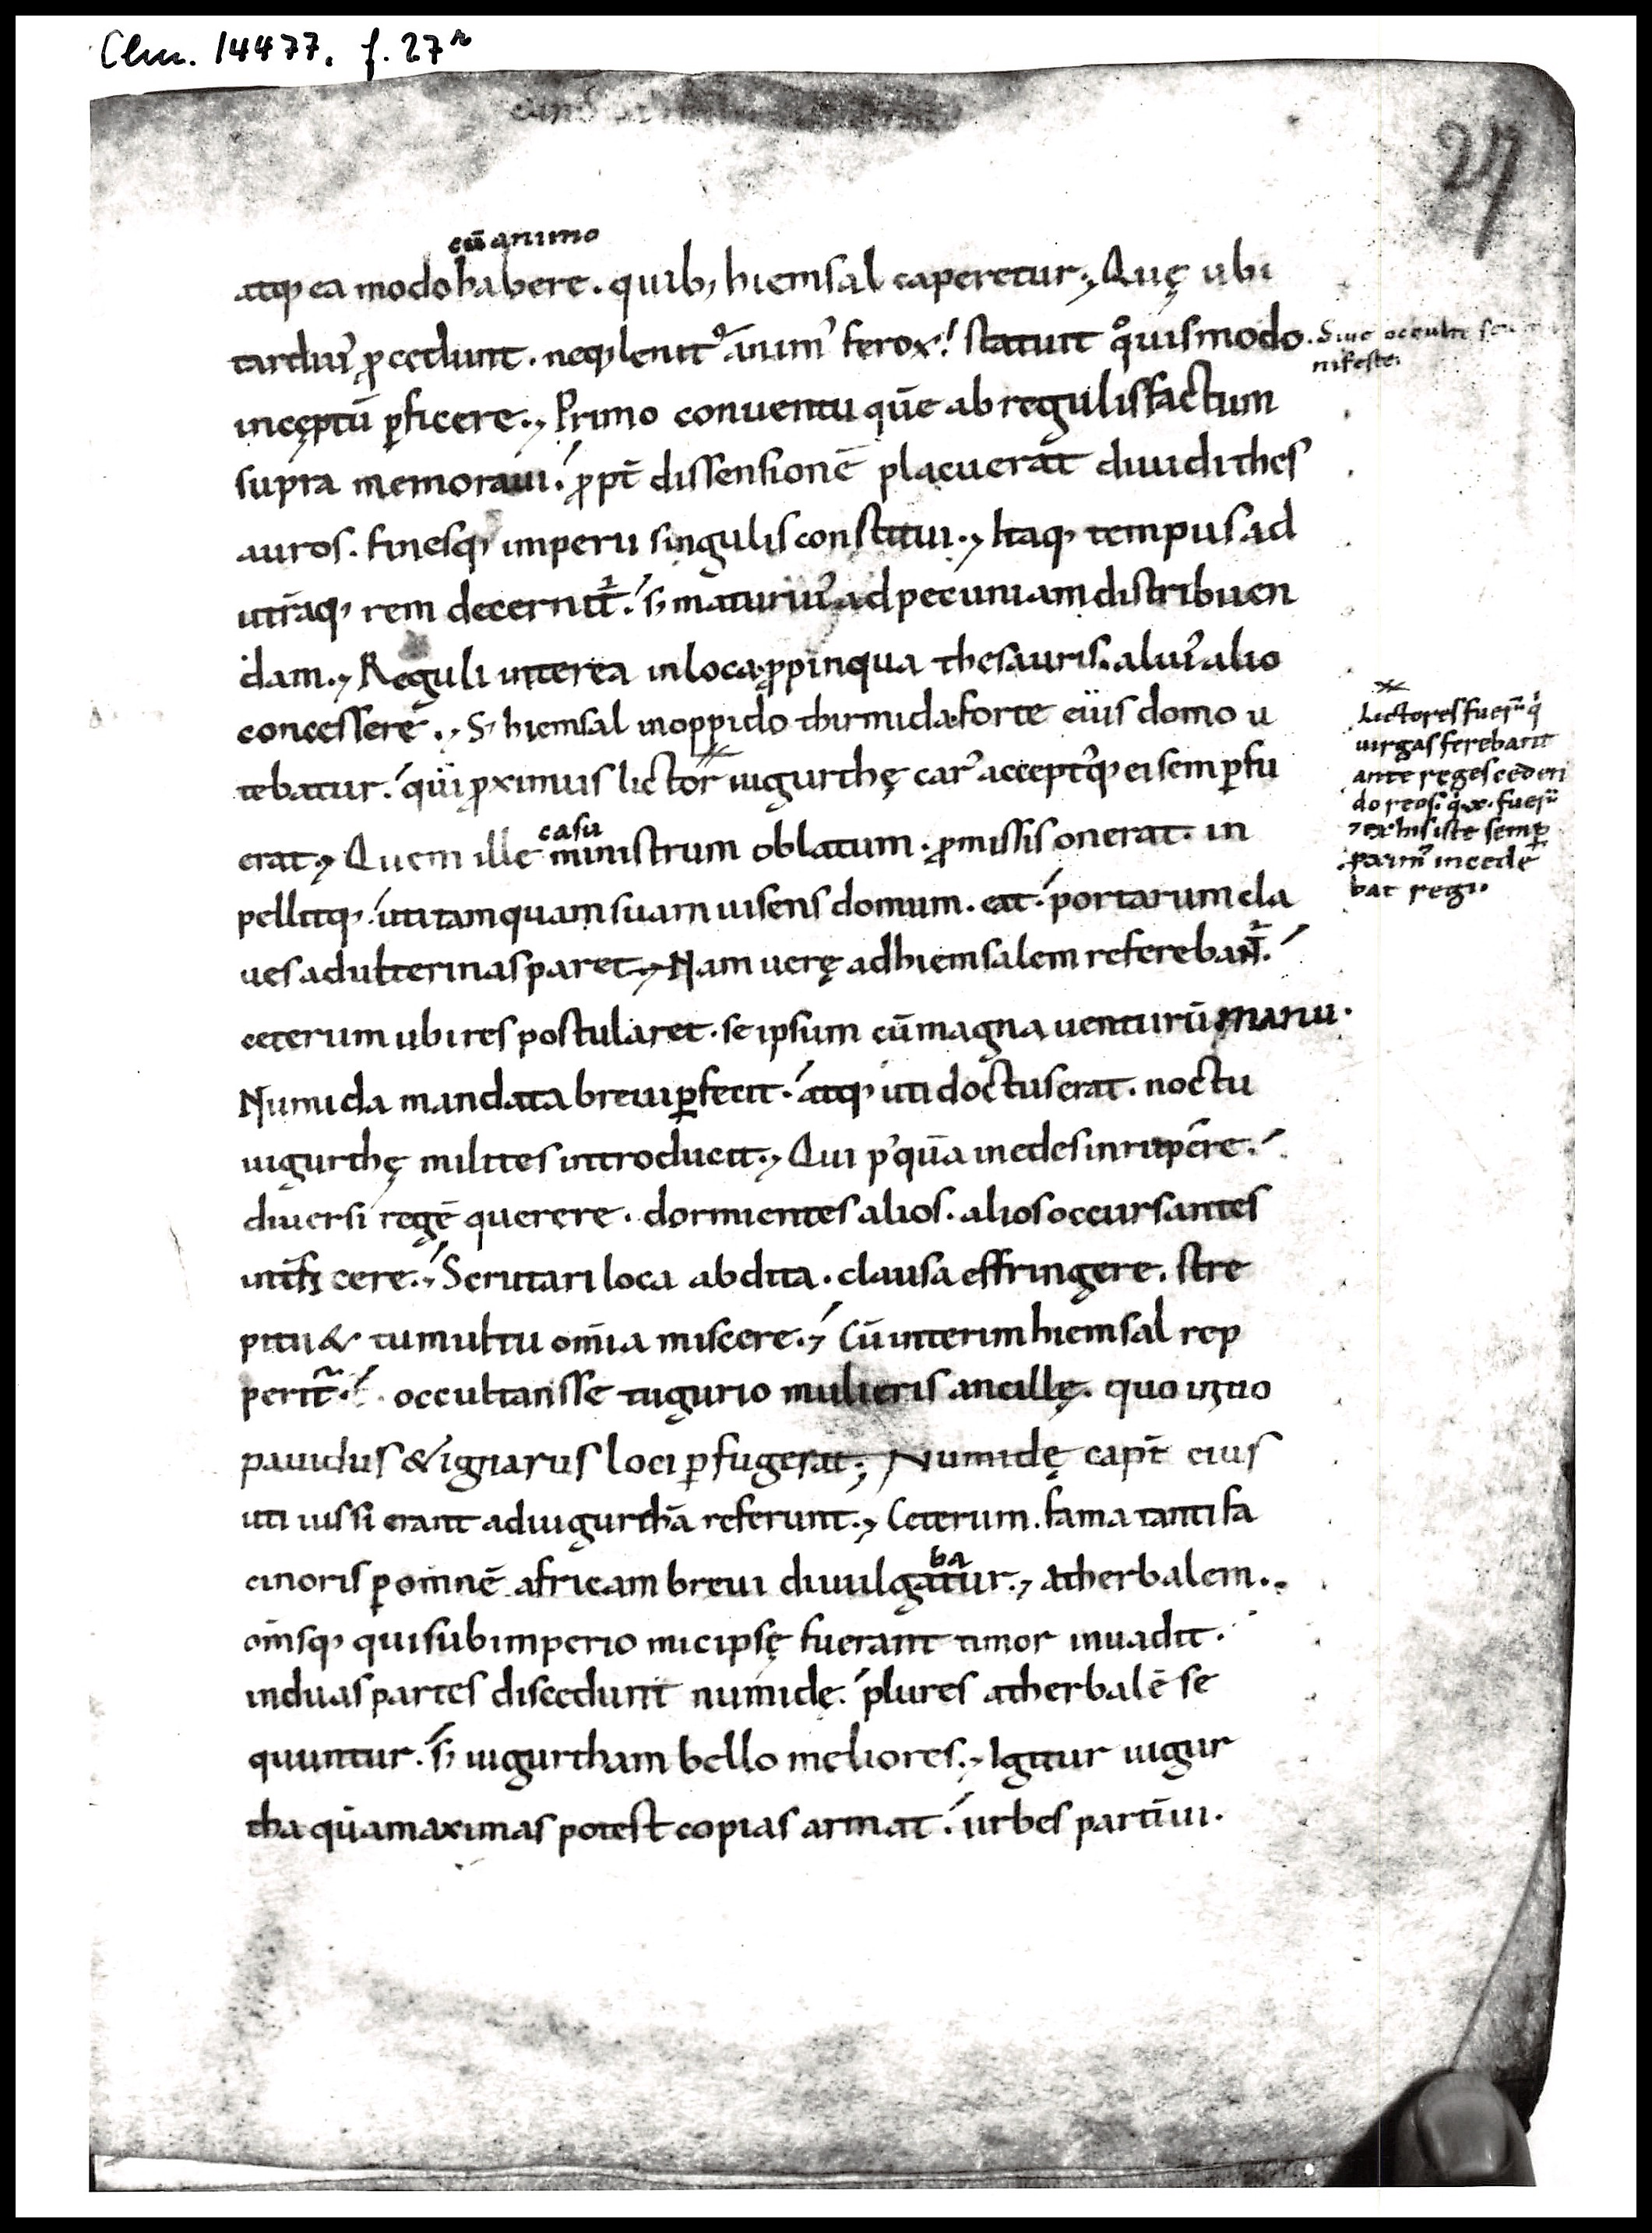 Clm. 14477. f. 27r
27
cū animo
atq; ea modo habere. quib; hiemsal caperetur; Quę ubi
tardiuꝰ ꝓcedunt. neq; lenit᷑ anim᷒ ferox! statuit quouismodo. Siue occulte seu
nifeste.
incęptū ꝑficere.; Primo conuentu quē ab regulis factum
supra memoraui! ꝓpt̄ dissensionē placuerat diuidi thes
auros. finesq; imperii singulis constitui.; Itaq; tempus ad
utrāq; rem decernit᷑! s; maturiuꝰ ad pecuniam distribuen
dam.; Reguli interea in loca ꝓpinqua thesauris. aliuꝰ alio
concessere.; S; hiemsal in oppido thirmida. forte eius domo u
tebatur! qui ꝓximus lictor iugurthę carꝰ acceptꝰq; ei semꝑ fu
Lictores fuer̄ q́
uirgas ferebant
ante reges ceden
do reos. q́ .x. fuer̄
⁊ ex his iste semꝑ
ꝓximꝰ incede
bat regi.
casu
erat; Quem ille ministrum oblatum. ꝓmissis onerat. in
pellitq;! uti tamquam suam uisens domum. eat! portarum cla
ues adulterinas paret.; Nam uerę ad hiemsalem referebant᷑!
ceterum ubi res postularet. se ipsum cū magna uenturū manu.
Numida mandata breui ꝑfecit! atq; uti doctus erat. noctu
iugurthę milites introducit.; Qui pꝰquā in edes inrupēre!
diuersi regē querere. dormientes alios. alios occursantes
int̄ficere.; Scrutari loca abdita. clausa effringere. stre
pitu & tumultu om̄ia miscere.; Cū interim hiemsal rep
perit᷑! occultans se tugurio mulieris ancillę. quo initio
pauidus & ignarus loci ꝑfugerat; Numidę capt̄ eius
uti iussi erant ad iugurthā referunt.; Ceterum. fama tanti fa
ba
cinoris ꝑ omnē africam breui diuulgatur.; Atherbalem.
om̄sq; qui sub imperio micipsę fuerant timor inuadit.
in duas partes discedunt numidę! plures atherbalē se
quuntur! s; iugurtham bello meliores.; Igitur iugur
tha quā maximas potest copias armat! urbes partī ui.